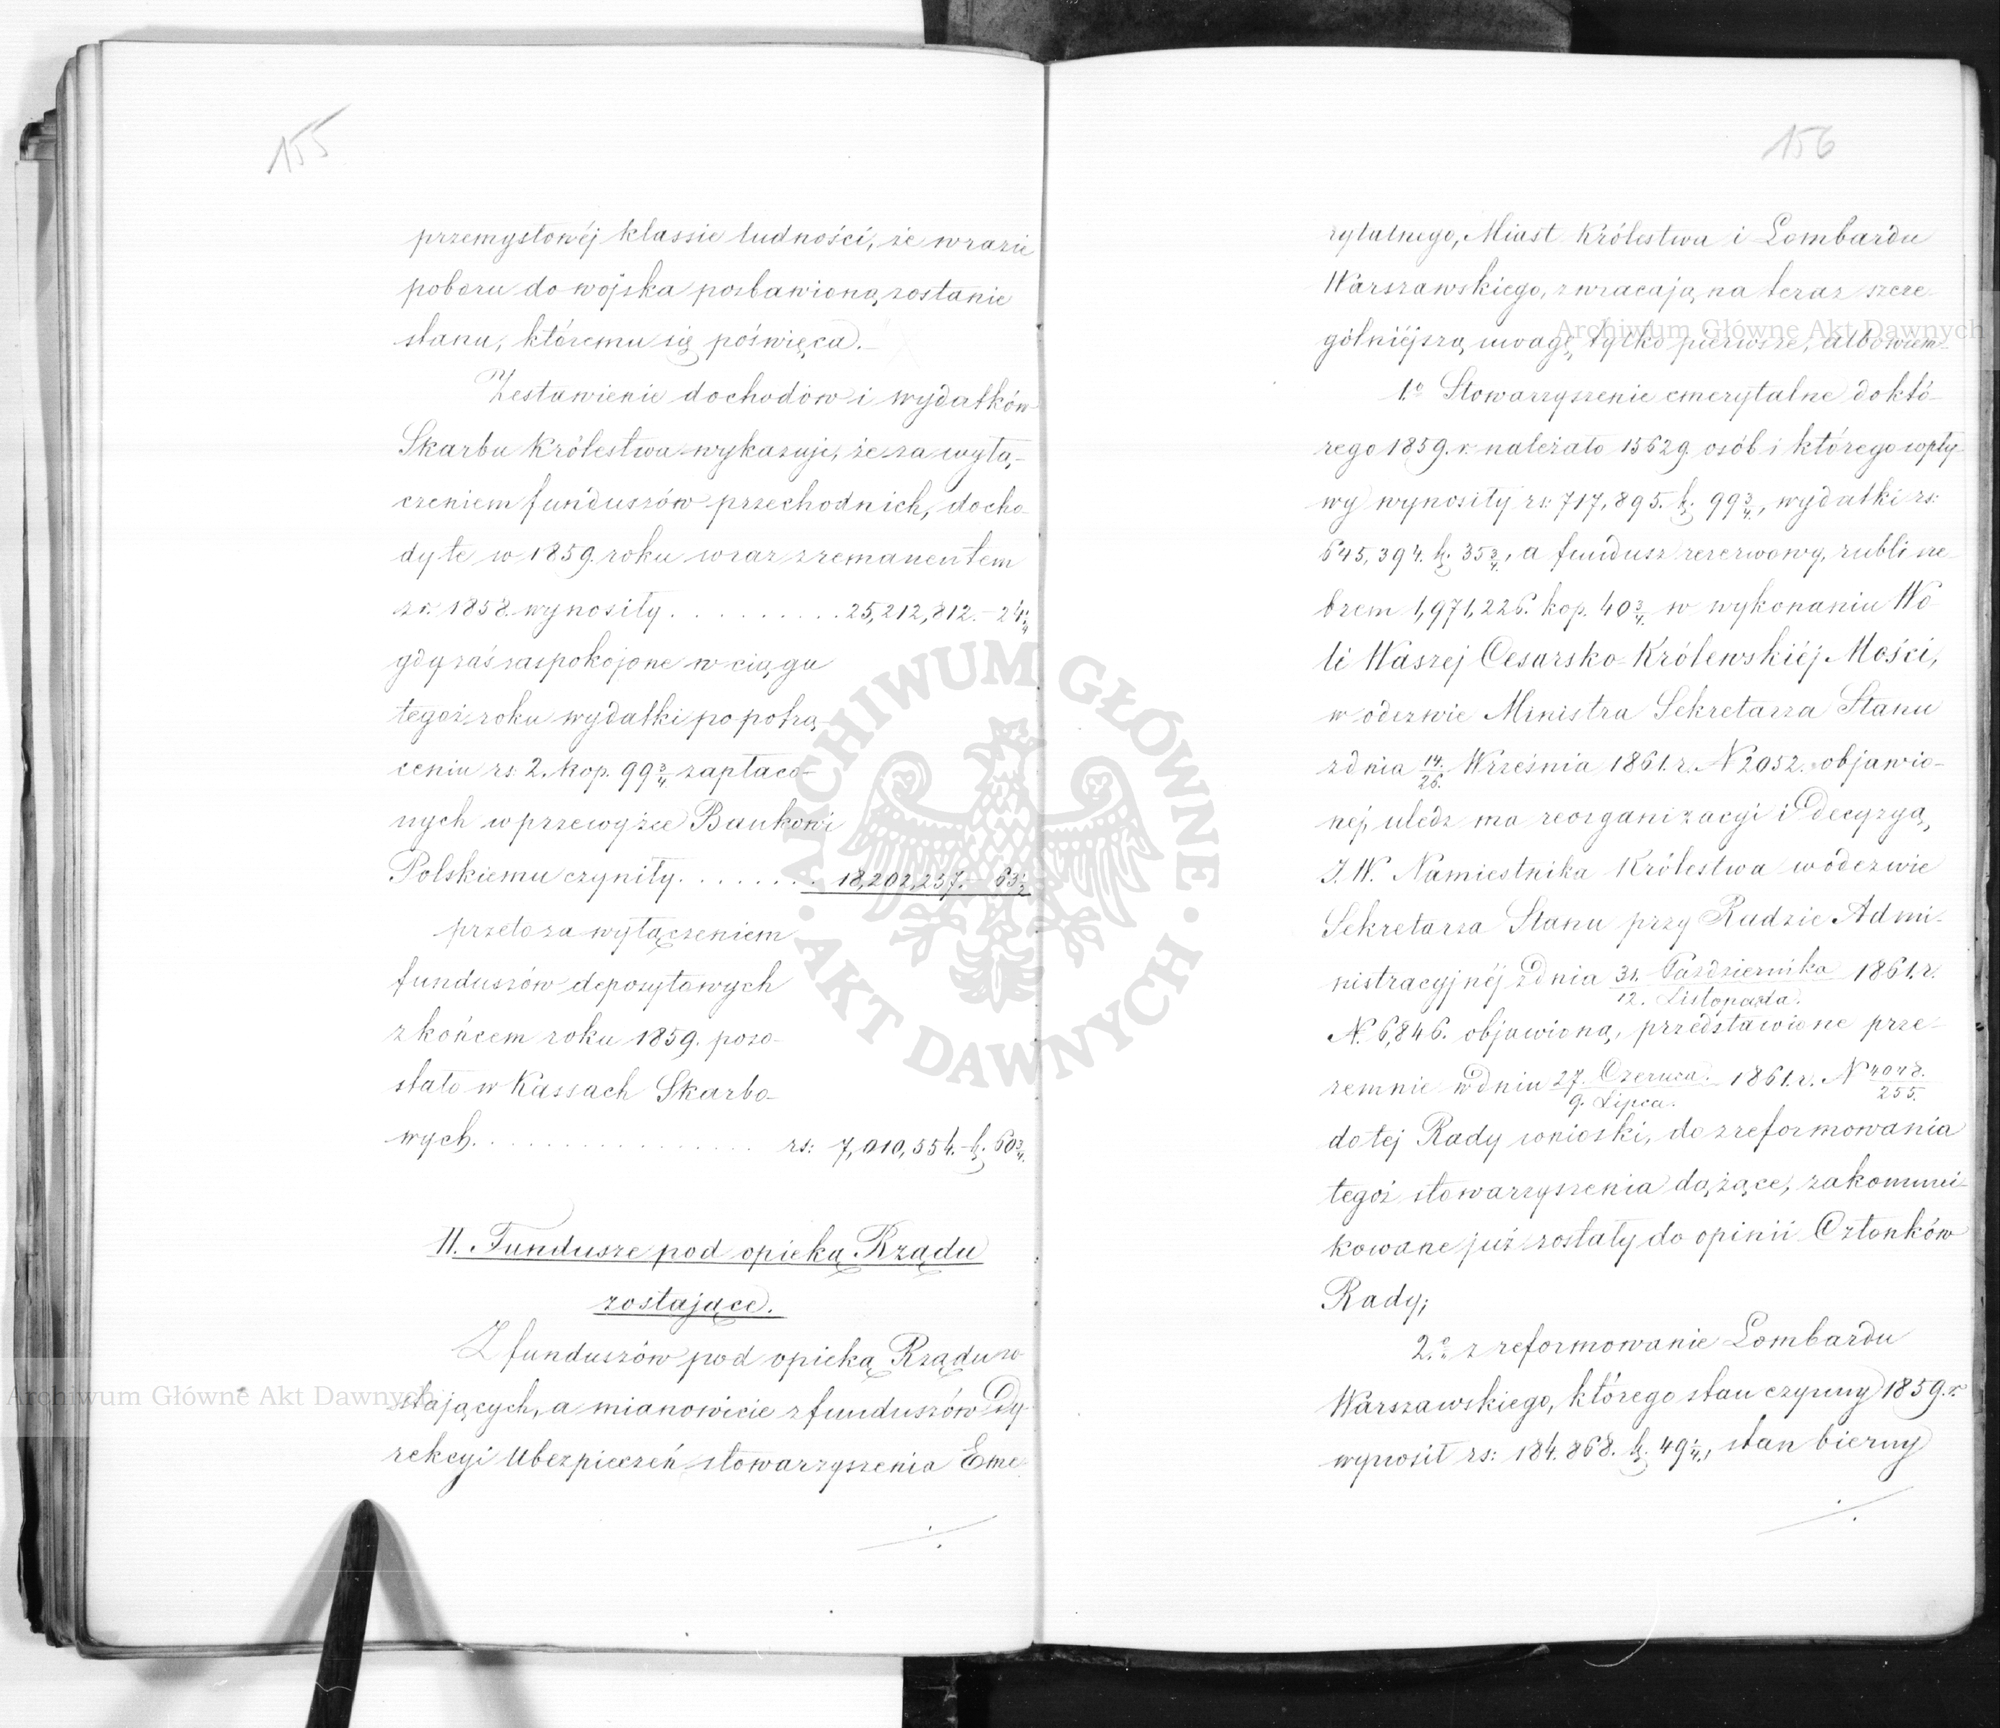 155
przemysłowéj klassie ludności, że w razie
poboru do wojska pozbawioną zostanie
stanu, któremu się poświęca.
Zestawienie dochodów i wydatków
Skarbu Królestwa wykazuje, że za wyłą-
czeniem funduszów przechodnich, docho-
dy te w 1859. roku wraz z remanentem
z r. 1858. wynosiły . . . . . . . . . 25,212,812. - 24 1/4
gdy zaś zaspokojone w ciągu
tegoż roku wydatki po potrą-
ceniu rs: 2. kop. 99 3/4 zapłaco-
nych w przewyżce Bankowi
Polskiemu czyniły. . . . . . . 18,202,257. - 63 1/2
przeto za wyłączeniem
funduszów depozytowych
z końcem roku 1859. pozo-
stało w Kassach Skarbo-
wych. . . . . . . . . . . . . . . rs: 7,010,554. k. 60 3/4
II. Fundusze pod opieką Rządu
zostające.
Z funduszów pod opieką Rządu zo
stających, a mianowicie z funduszów Dy-
rekcyi Ubezpieczeń stowarzyszenia Eme
156
rytalnego, Miast Królestwa i Lombardu
Warszawskiego, zwracają na teraz szcze
gólniéjszą uwagę tylko pierwsze, albowiem
1o Stowarzyszenie emerytalne do któ-
rego 1859. r. należało 15629. osób i którego wpły-
wy wynosiły rs: 717,895. k. 99 3/4, wydatki rs:
645,394. k. 35 3/4, a fundusz rezerwowy, rubli sre
brem 1,971,226. kop. 40 3/4 w wykonaniu Wo
li Waszej Cesarsko-Królewskiéj Mości,
w odezwie Ministra Sekretarza Stanu
z dnia 14./26. Września 1861. r. N 2052. objawio-
nej, uledz ma reorganizacyi i Decyzyą
J. W. Namiestnika Królestwa w odezwie
Sekretarza Stanu przy Radzie Admi-
nistracyjnéj z dnia 31. Października/12. Listopada. 1861. r.
N. 6,846. objawioną, przedstawione prze-
zemnie w dniu 27. Czerwca./9. Lipca. 1861. r. N 4048./255.
do tej Rady wnioski, do zreformowania
tegoż stowarzyszenia dążące, zakommuni
kowane już zostały do opinii Członków
Rady;
2o zreformowanie Lombardu
Warszawskiego, którego stan czynny 1859. r.
wynosił rs: 184.868. k. 49 1/4, stan bierny
Archiwum Główne Akt Dawnych
Archiwum Główne Akt Dawnych
ARCHIWUM GŁÓWNE · AKT DAWNYCH ·